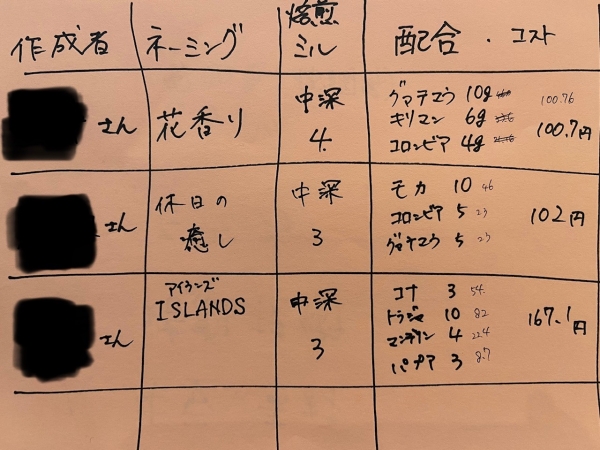 作成者
ネーミング
焙煎
ミル
配合・コスト
さん
花香り
中深
4
グァテマラ 10g
キリマン 6g
コロンビア 4g
100.76
100.7円
さん
休日の
癒し
中深
3
モカ 10 46
コロンビア 5 23
グァテマラ 5 23
102円
さん
アイランズ
ISLANDS
中深
3
コナ 3 54
トラジャ 10 82
マンデリン 4 22.4
パナマ 3 8.7
167.1円